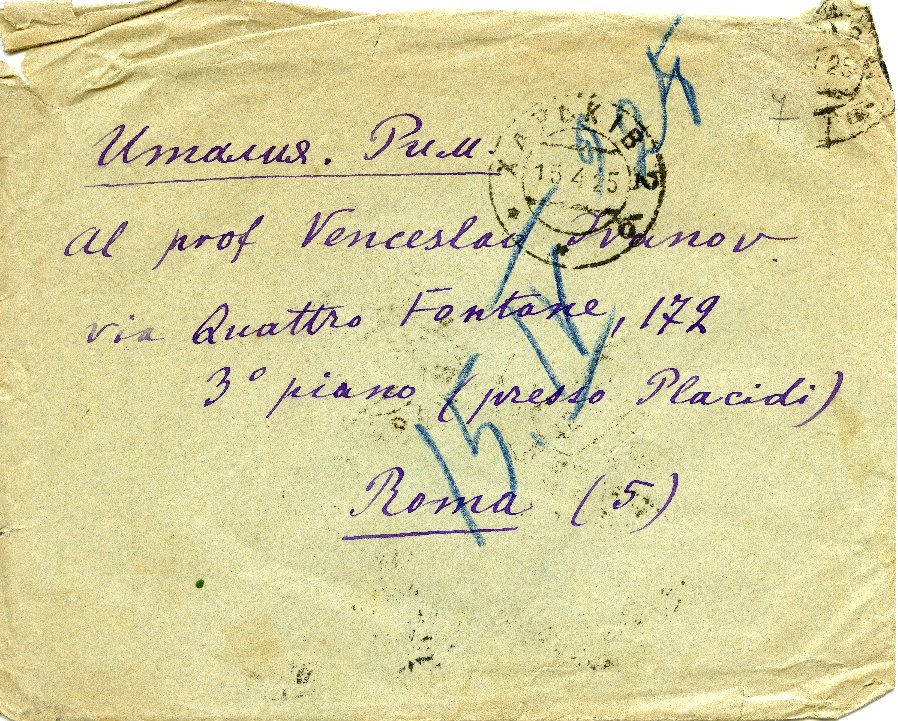 Италия. Рим
Al prof Venceslao Ivanov.
via Quattro Fontane, 172
3° piano (presso Placidi)
Roma (5)
ХАРЬКІВ
15 4 25
б
15. IV 925
25
7